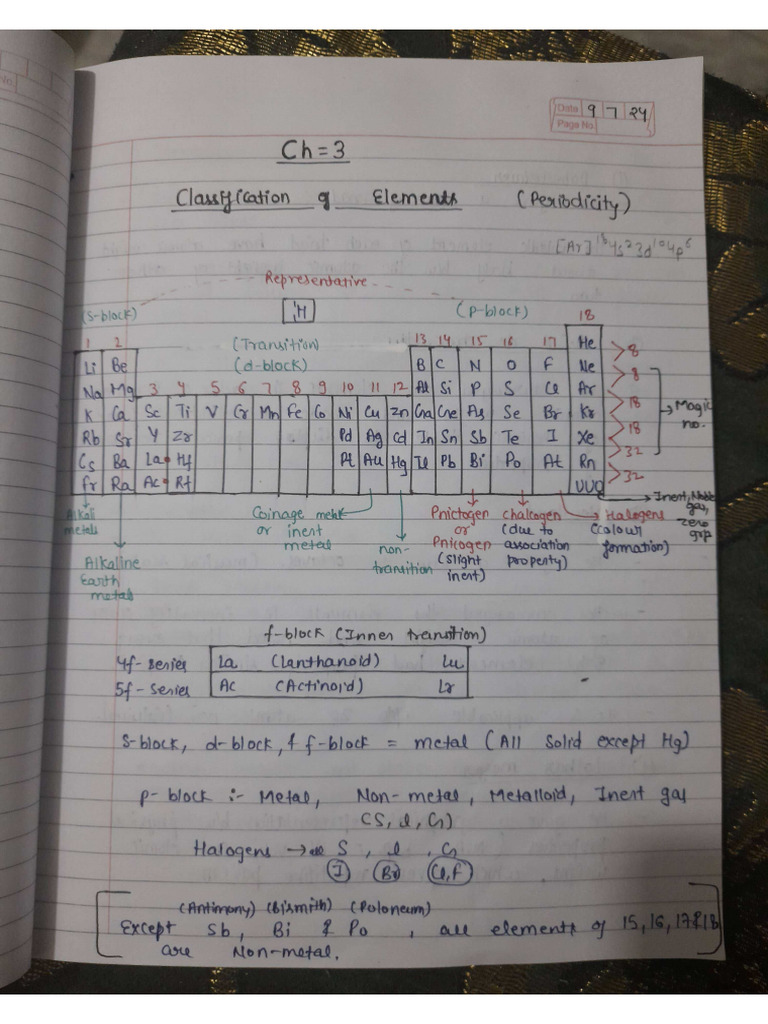 Date 9 7 24
Page No.
Ch = 3
Classification of Elements (Periodicity)
[Ar]¹⁸4s²3d¹⁰4p⁶
Representative
(S-block) ¹H (P-block) 18
1 2 (Transition) 13 14 15 16 17 He
Li Be (d-block) B C N O F Ne 8
Na Mg 3 4 5 6 7 8 9 10 11 12 Al Si P S Cl Ar 8
K Ca Sc Ti V Cr Mn Fe Co Ni Cu Zn Ga Ge As Se Br Kr 18 Magic no.
Rb Sr Y Zr Pd Ag Cd In Sn Sb Te I Xe 18
Cs Ba La Hf Pt Au Hg Tl Pb Bi Po At Rn 32
Fr Ra Ac Rf UUO 32
Inert, Noble gas, zero grp
Alkali metals
Alkaline Earth metals
Coinage metal or inert metal
non-transition
Pnictogen or Pnicogen (Slight inent)
chalcogen (due to association property)
Halogens (colour formation)
f-block (Inner transition)
4f-series La (Lanthanoid) Lu
5f-series Ac (Actinoid) Lr
S-block, d-block, & f-block = metal (All Solid except Hg)
P-block :- Metal, Non-metal, Metalloid, Inert gas
(S, l, G)
Halogens → S , l , G
I Br Cl, F
(Antimony) (Bismith) (Poloneum)
Except Sb, Bi & Po , all elements of 15, 16, 17 & 18
are Non-metal.